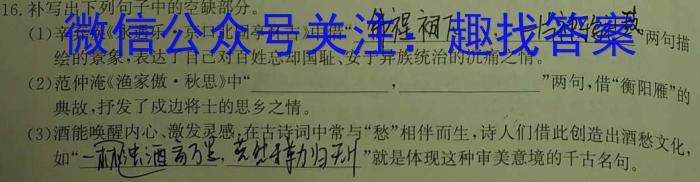 16.补写出下列句子中的空缺部分。
(1)辛弃疾《永遇乐·京口北固亭怀古》中“ ”两句描
微信公众号关注：趣找答案
绘的景象,表达了自己对百姓忘却国耻、安于异族统治的沉痛之情。
(2)范仲淹《渔家傲·秋思》中“ , ”两句,借“衡阳雁”的
典故,抒发了戍边将士的思乡之情。
(3)酒能唤醒内心、激发灵感,在古诗词中常与“愁”相伴而生,诗人们借此创造出酒愁文化,
如“一杯浊酒家万里,燕然未勒归无计”就是体现这种审美意境的千古名句。